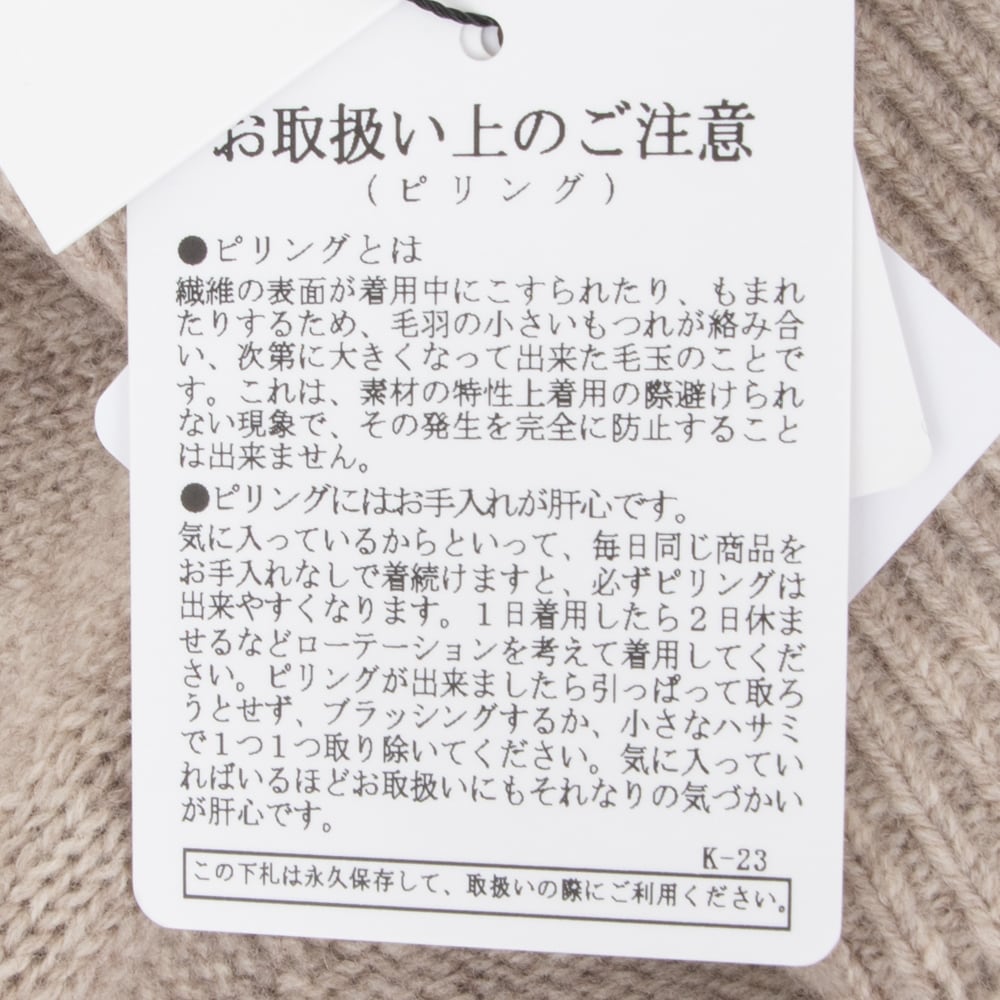 お取扱い上のご注意
(ピリング)
●ピリングとは
繊維の表面が着用中にこすられたり、もまれ
たりするため、毛羽の小さいもつれが絡み合
い、次第に大きくなって出来た毛玉のことで
す。これは、素材の特性上着用の際避けられ
ない現象で、その発生を完全に防止すること
は出来ません。
●ピリングにはお手入れが肝心です。
気に入っているからといって、毎日同じ商品を
お手入れなしで着続けますと、必ずピリングは
出来やすくなります。1日着用したら2日休ま
せるなどローテーションを考えて着用してくだ
さい。ピリングが出来ましたら引っぱって取ろ
うとせず、ブラッシングするか、小さなハサミ
で1つ1つ取り除いてください。気に入ってい
ればいるほどお取扱いにもそれなりの気づかい
が肝心です。
K-23
この下札は永久保存して、取扱いの際にご利用ください。